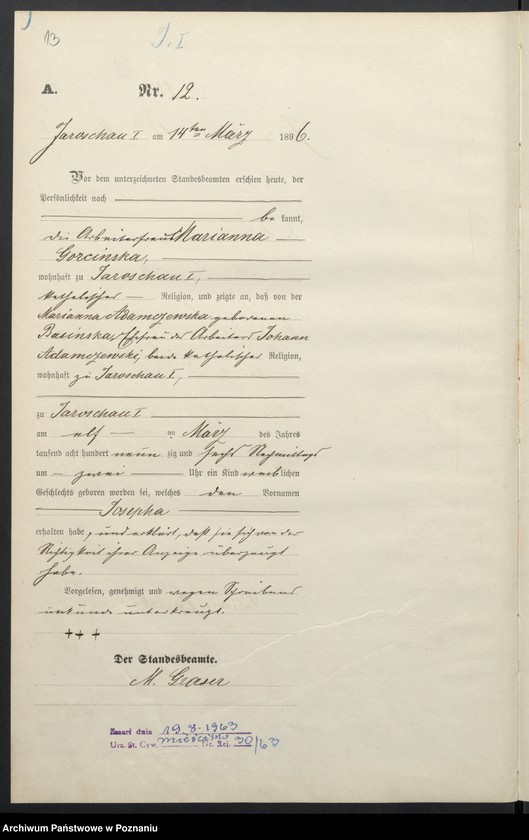 13
J. I
A. Nr. 12.
Jaroschau I am 14ten März 1896.
Vor dem unterzeichneten Standesbeamten erschien heute, der
Persönlichkeit nach
be kannt,
die Arbeiterfrau Marianna
Gorcinska,
wohnhaft zu Jaroschau I,
katholischer Religion, und zeigte an, daß von der
Marianna Adamczewska geborenen
Basinska, Ehefrau des Arbeiters Johann
Adamczewski, beide katholischer Religion,
wohnhaft zu Jaroschau I,
zu Jaroschau I
am elf ten März des Jahres
tausend acht hundert neun zig und sechs Nachmittags
um zwei Uhr ein Kind weib lichen
Geschlechts geboren worden sei, welches den Vornamen
Josepha
erhalten habe, und erklärt, daß sie sich von der
Richtigkeit ihrer Anzeige überzeugt
habe.
Vorgelesen, genehmigt und wegen Schreibens
unkunde unterkreuzt.
+++
Der Standesbeamte.
M. Graser
Zmarł dnia 19.8.1963
Urz. St. Cyw. Mieścisko Nr. Rej. 30/63
Archiwum Państwowe w Poznaniu